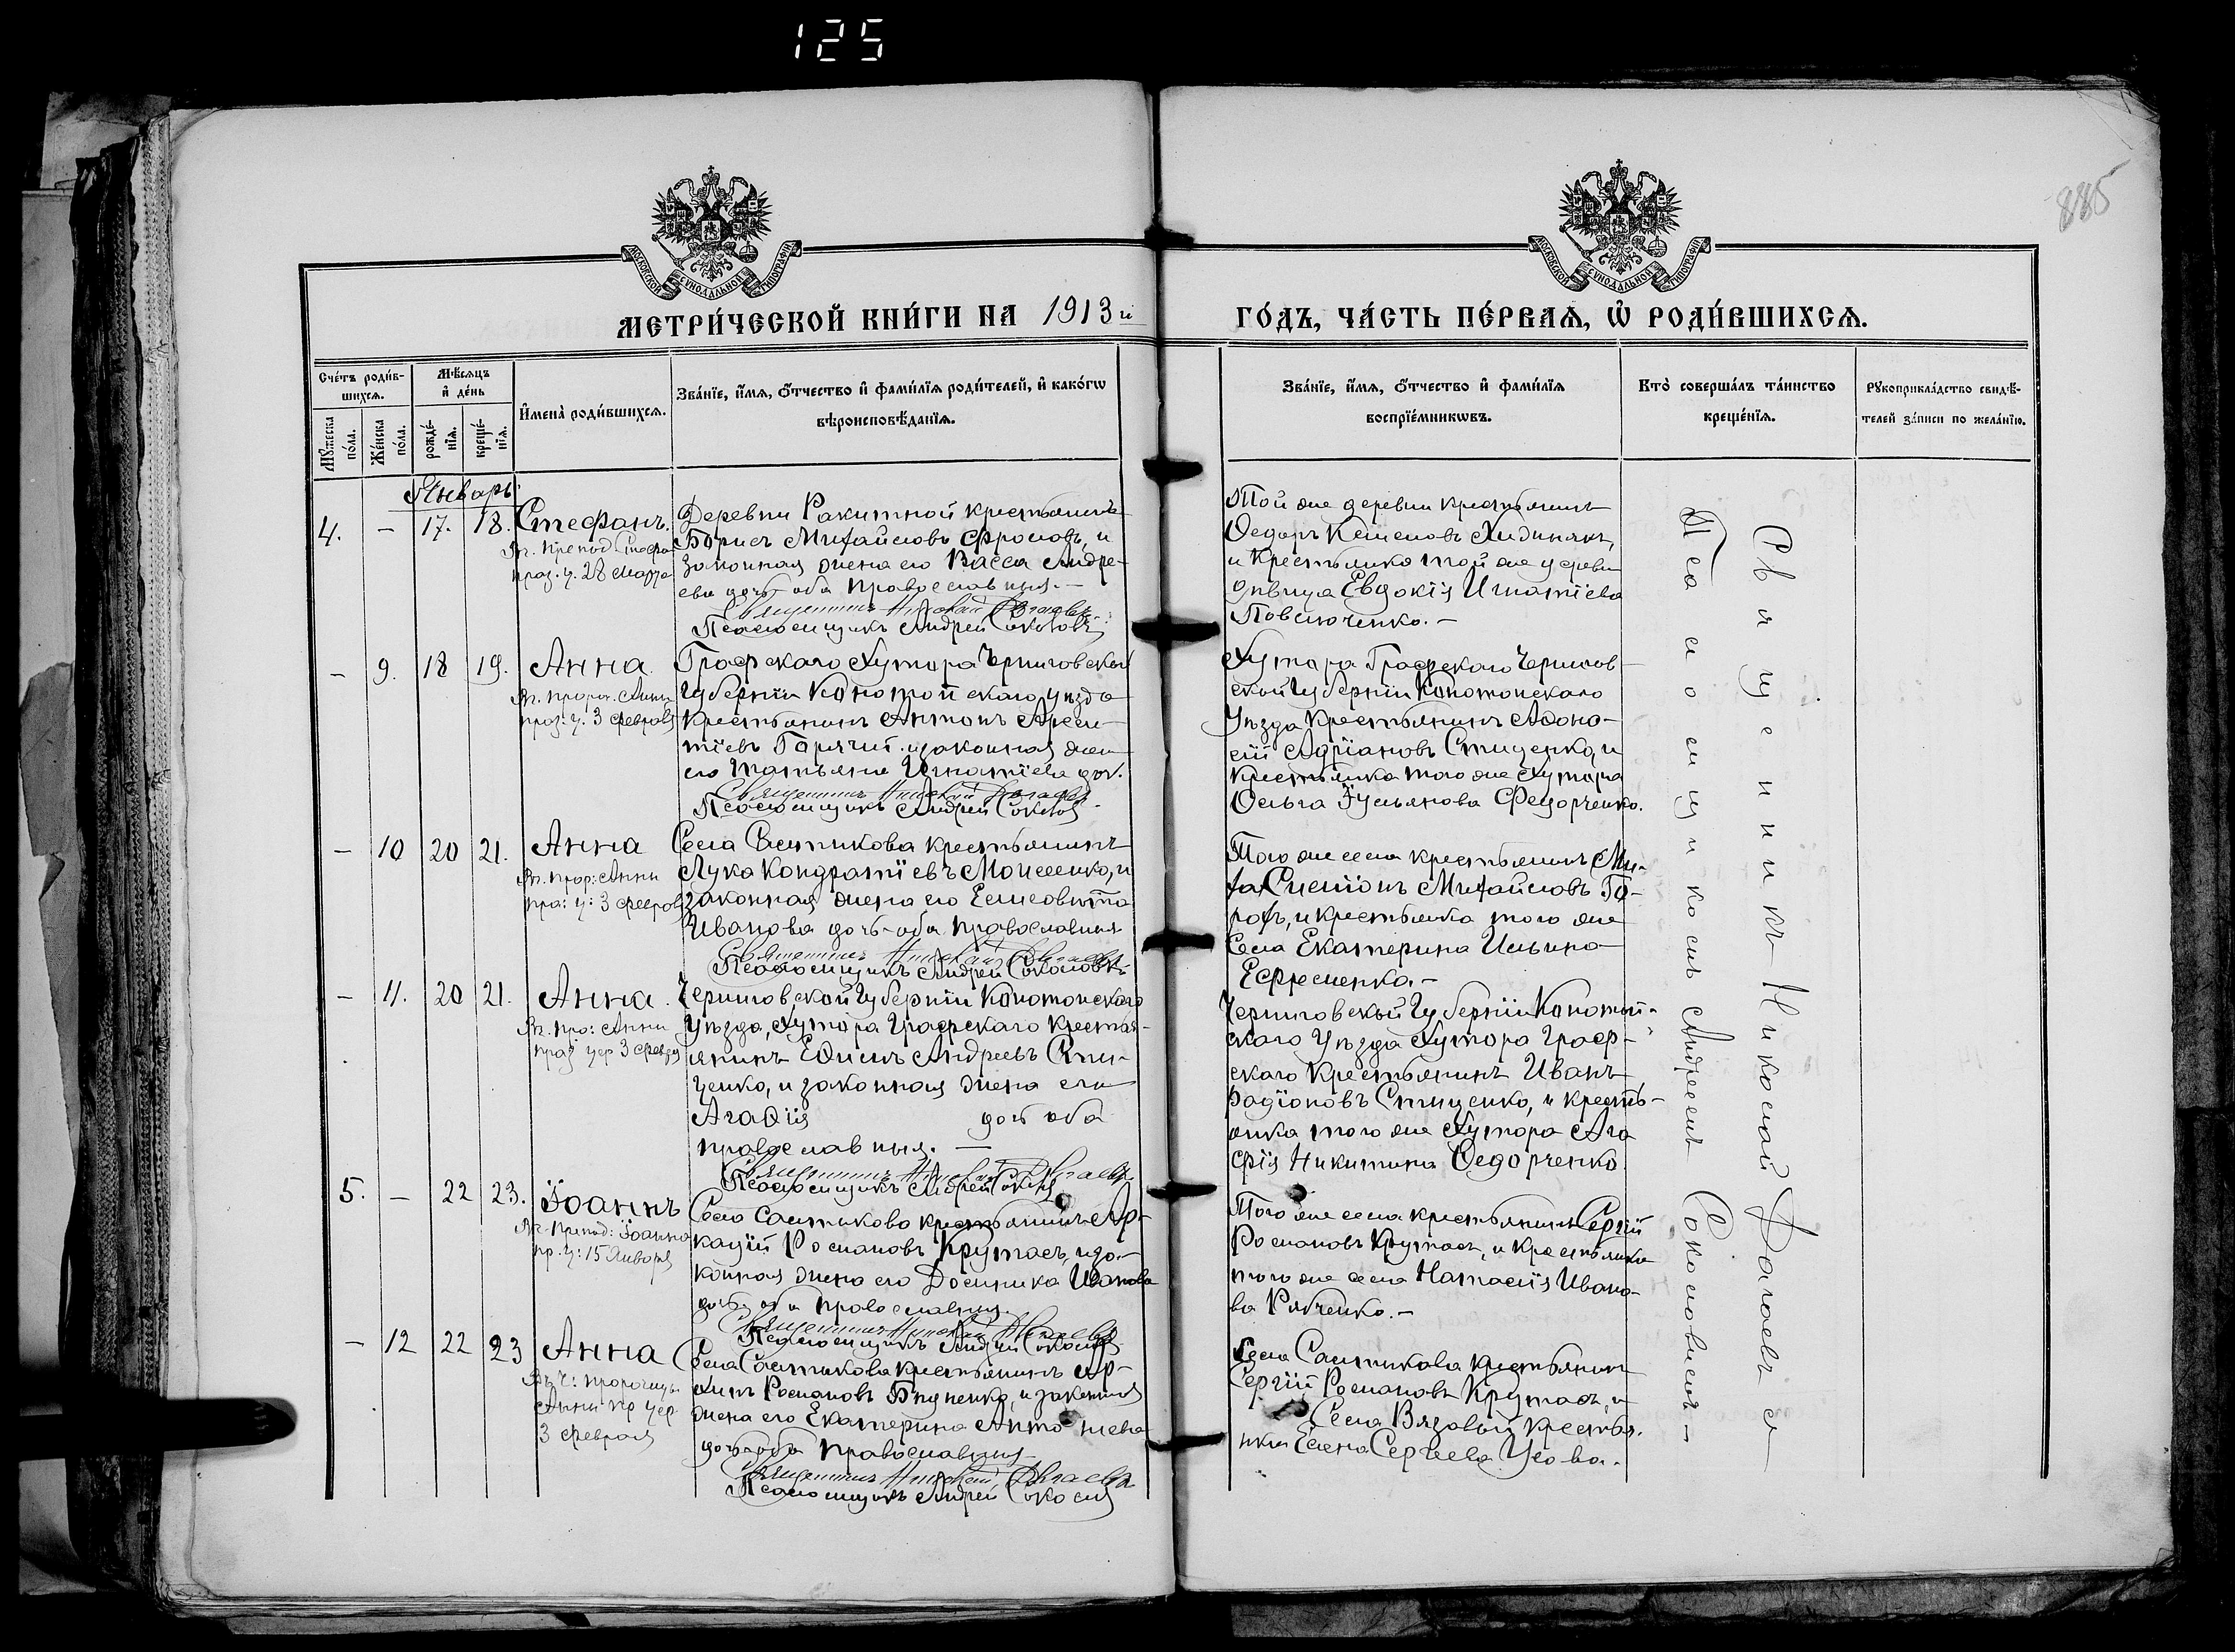 125
885
МОСКОВСКОЙ СѴНОДАЛЬНОЙ ТИПОГРАФІИ
МОСКОВСКОЙ СѴНОДАЛЬНОЙ ТИПОГРАФІИ
МЕТРИ́ЧЕСКОЙ КНИ́ГИ НА 1913 й
ГО́ДЪ, ЧА́СТЬ ПЕ́РВАЯ, Ѡ҆ РОДИ́ВШИХСЯ.
Сче́тъ роди́в-
шихся.
Му́жеска
по́ла.
Же́нска
по́ла.
Мѣ́сяцъ
и҆ де́нь
рожде́-
нїя.
креще́-
нїя.
И҆мена̀ роди́вшихся.
Зва́нїе, и҆́мя, ѻ҆́тчество и҆ фами́лїя роди́телей, и҆ како́гѡ
вѣроисповѣ́данїя.
Зва́нїе, и҆́мя, ѻ҆́тчество и҆ фами́лїя
воспрїе́мникѡвъ.
Кто̀ соверша́лъ та́инство
креще́нїя.
Рꙋкоприкла́дство свидѣ́-
телей за́писи по жела́нїю.
Январь
4. - 17. 18. Стефанъ.
праз. ц. 28 Марта
Деревни Ракитной крестьянинъ
Борисъ Михайловъ Фроловъ, и
законная жена его Васса Андре-
ева дочь оба православныя.-
Священникъ Николай
Псаломщикъ Андрей Соколовъ
Той же деревни крестьянинъ
Ѳедоръ
и крестьянка той же деревни
дѣвица Евдокія Игнатіева
Павлюченко.-
- 9. 18 19. Анна
Въ. пророч. Анны
праз. ц. 3 февраля
Графскаго Хутора Черниговской
Губерніи Конотопскаго уѣзда
крестьянинъ Антонъ
Горячий и законная жена
его Татьяна Игнатіева доч.
Священникъ Николай
Псаломщикъ Андрей Соколовъ
Хутора Графскаго Чернигов-
ской Губерніи Конотопскаго
Уѣзда крестьянинъ Аѳана-
сій Адріановъ Стиценко, и
крестьянка того же хутора
Ольга Федорченко.
- 10 20 21. Анна
Въ. прор: Анны
пра: ц: 3 феврал
Села Салтикова крестьянинъ
Лука Кондратіевъ Моисеенко, и
законная жена его Елисавета
Иванова дочь оба православныя
Священникъ Николай
Псаломщикъ Андрей Соколовъ
Того же села крестьянинъ
Михайловъ Го-
рохъ, и крестьянка того же
Села Екатерина Ильина
Ефременко.-
- 11. 20 21. Анна.
Въ. про: Анны
праз цер 3 февра
Черниговской Губерніи Конотопскаго
Уѣзда, Хутора Графскаго кресть-
янинъ Андреевъ Сти-
ценко, и законная жена его
Агаѳія дочь оба
православныя. -
Священникъ Николай
Псаломщикъ Андрей Соколовъ
Черниговской Губерніи Конотоп-
скаго Уѣзда Хутора Граф-
скаго крестьянинъ Иванъ
Радіоновъ Стиценко, и кресть-
янка того же Хутора Ага
фія Никитина Ѳедорченко
5. - 22 23. Іоаннъ
Въ. препод: Іоанна
пр. ц: 15 Января
Села Салтикова крестьянинъ Ар-
кадій Романовъ Крутась, и за-
конная жена его Домника Иванова
дочь оба православныя.
Священникъ Николай
Псаломщикъ Андрей Соколовъ
Того же села крестьянинъ Сергій
Романовъ Крутась, и крестьянка
того же села Наталія Ивано-
ва Рябченко.-
- 12 22 23 Анна
Въ ч: пророчицы
Анны пр цер
3 февраля
Села Салтикова крестьянинъ
Романовъ и законная
жена его Екатерина
дочь оба православныя
Священникъ Николай
Псаломщикъ Андрей Соколовъ
Села Салтикова крестьянинъ
Сергій Романовъ Крутась, и
Села Вязовой крестья-
нка Елена Сергѣева
Священникъ Николай
Псаломщикомъ Андреемъ Соколовымъ-